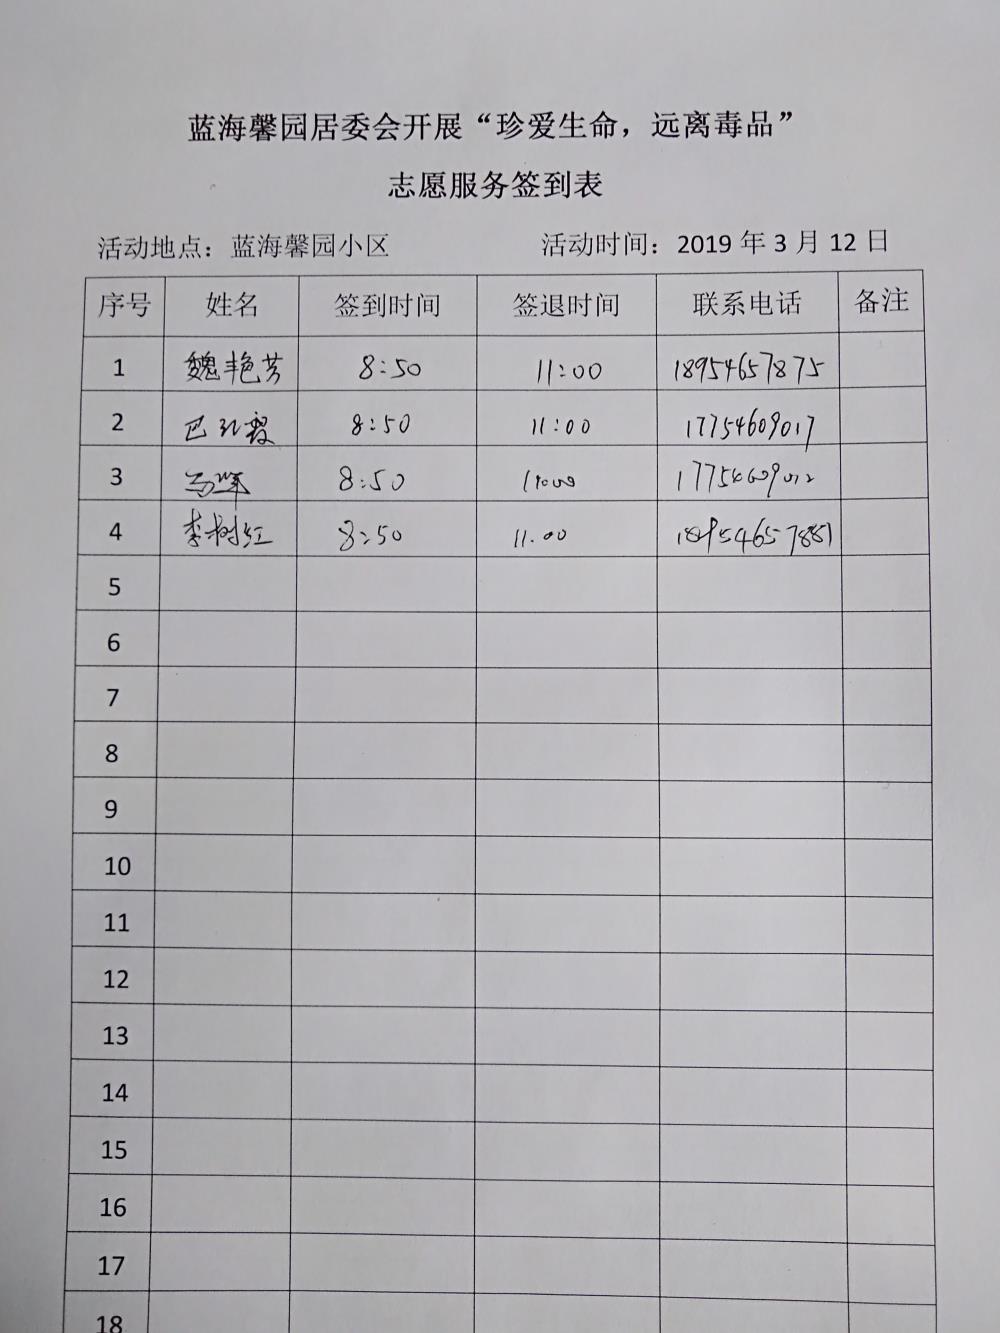 蓝海馨园居委会开展“珍爱生命，远离毒品”
志愿服务签到表
活动地点：蓝海馨园小区 活动时间：2019 年 3 月 12 日
序号 姓名 签到时间 签退时间 联系电话 备注
1 魏艳芳 8:50 11:00 18954657875
2 8:50 11:00 17754609017
3 8:50 11:00 17754609012
4 李树红 8:50 11:00 18954657881
5
6
7
8
9
10
11
12
13
14
15
16
17
18